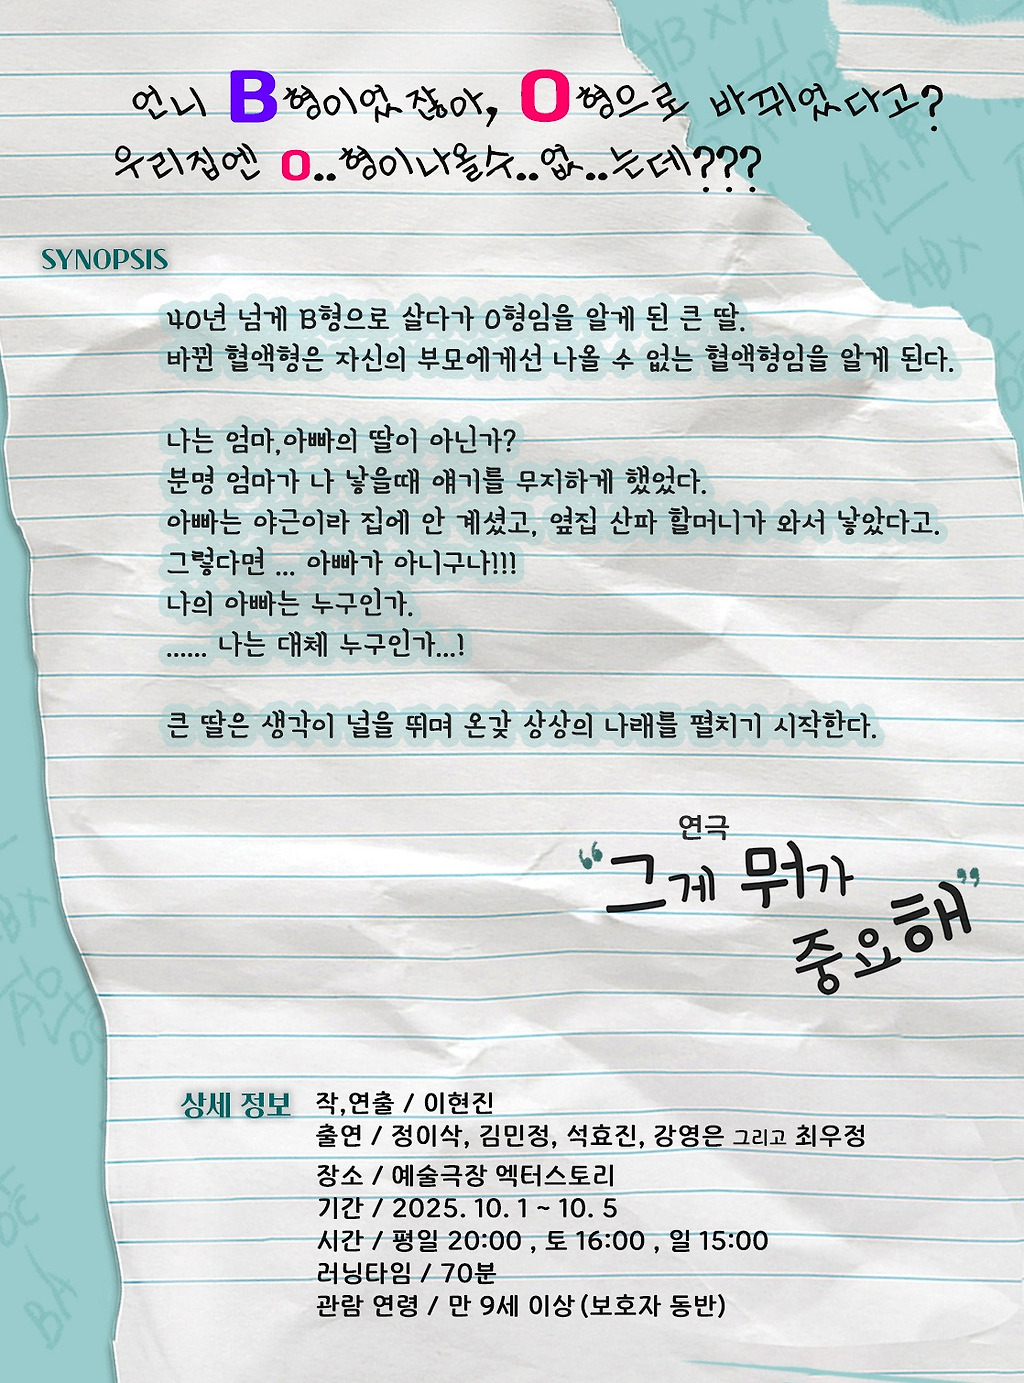 언니 B형이었잖아, O형으로 바뀌었다고?
우리집엔 o..형이나올수..없..는데???
SYNOPSIS
40년 넘게 B형으로 살다가 O형임을 알게 된 큰 딸.
바뀐 혈액형은 자신의 부모에게선 나올 수 없는 혈액형임을 알게 된다.
나는 엄마,아빠의 딸이 아닌가?
분명 엄마가 나 낳을때 얘기를 무지하게 했었다.
아빠는 야근이라 집에 안 계셨고, 옆집 산파 할머니가 와서 낳았다고.
그렇다면 ... 아빠가 아니구나!!!
나의 아빠는 누구인가.
...... 나는 대체 누구인가...!
큰 딸은 생각이 널을 뛰며 온갖 상상의 나래를 펼치기 시작한다.
연극
“그게 뭐가
중요해”
상세 정보 작,연출 / 이현진
출연 / 정이삭, 김민정, 석효진, 강영은 그리고 최우정
장소 / 예술극장 엑터스토리
기간 / 2025. 10. 1 ~ 10. 5
시간 / 평일 20:00 , 토 16:00 , 일 15:00
러닝타임 / 70분
관람 연령 / 만 9세 이상 (보호자 동반)